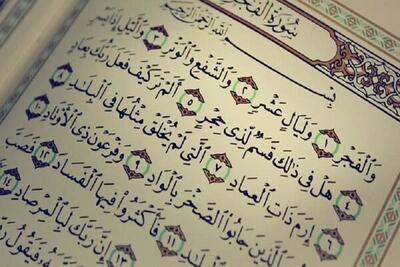 سُورَةُ الفَجْرِ
بِسْمِ اللَّهِ الرَّحْمَٰنِ الرَّحِيمِ
وَالْفَجْرِ ١ وَلَيَالٍ عَشْرٍ ٢ وَالشَّفْعِ وَالْوَتْرِ ٣ وَاللَّيْلِ إِذَا يَسْرِ
٤ هَلْ فِي ذَٰلِكَ قَسَمٌ لِّذِي حِجْرٍ ٥ أَلَمْ تَرَ كَيْفَ فَعَلَ رَبُّكَ بِعَادٍ
٦ إِرَمَ ذَاتِ الْعِمَادِ ٧ الَّتِي لَمْ يُخْلَقْ مِثْلُهَا فِي الْبِلَٰدِ ٨
الَّذِينَ جَابُوا الصَّخْرَ بِالْوَادِ ٩ وَفِرْعَوْنَ ذِي الْأَوْتَادِ ١٠
١١ فَأَكْثَرُوا فِيهَا الْفَسَادَ ١٢ فَصَبَّ
١٣ إِنَّ رَبَّكَ لَبِالْمِرْصَادِ